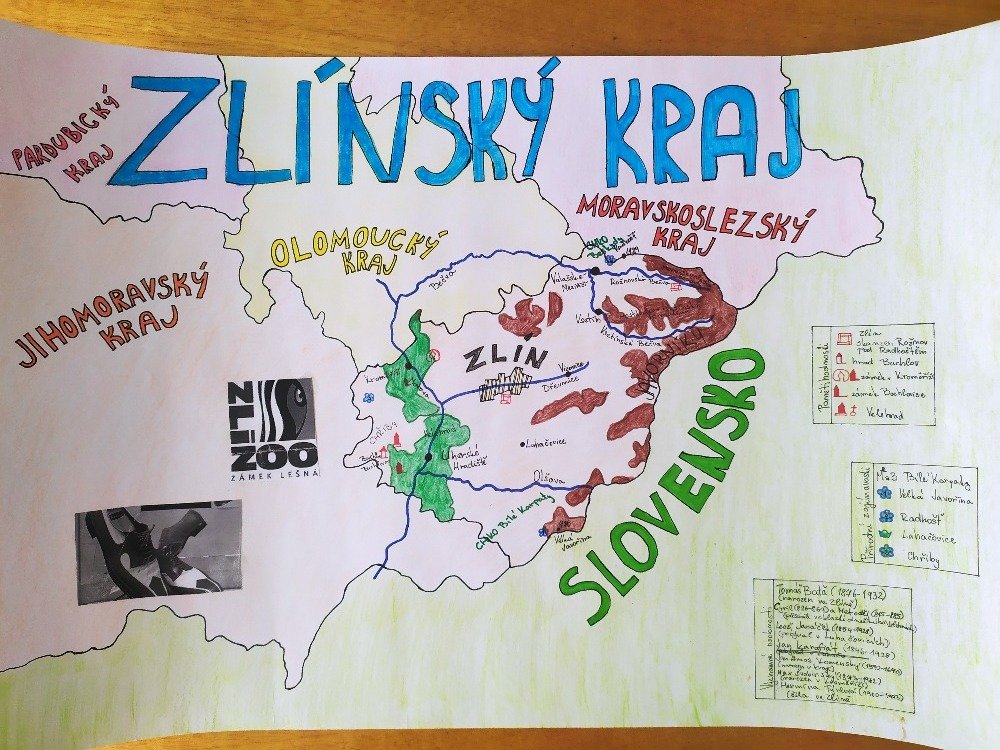 ZLÍNSKÝ KRAJ
PARDUBICKÝ
KRAJ
OLOMOUCKÝ
KRAJ
MORAVSKOSLEZSKÝ
KRAJ
JIHOMORAVSKÝ
KRAJ
SLOVENSKO
Bečva
CHKO
Beskydy
Radhošť
Valašské
Meziříčí
Rožnovská Bečva
Vsetín
Vsetínská Bečva
JAVORNÍKY
ZLÍN
Vizovice
Dřevnice
CHŘIBY
Luhačovice
Uherské
Hradiště
Olšava
CHKO Bílé Karpaty
Velká
Javořina
ZLIN
ZOO
ZÁMEK LEŠNÁ
Pamětihodnosti
Zlín
skanzen Rožnov
pod Radhoštěm
hrad Buchlov
zámek v Kroměříži
zámek Buchlovice
Velehrad
Přírodní zajímavosti
Bílé Karpaty
Velká Javořina
Radhošť
Luhačovice
Chřiby
Významné osobnosti
Tomáš Baťa (1876-1932)
(narozen ve Zlíně)
Leoš Janáček (1854-1928)
(pobýval v Luhačovicích)
Jan Karafiát (1846-1929)
Jan Amos Komenský (1592-1670)
(žila ve Zlíně)